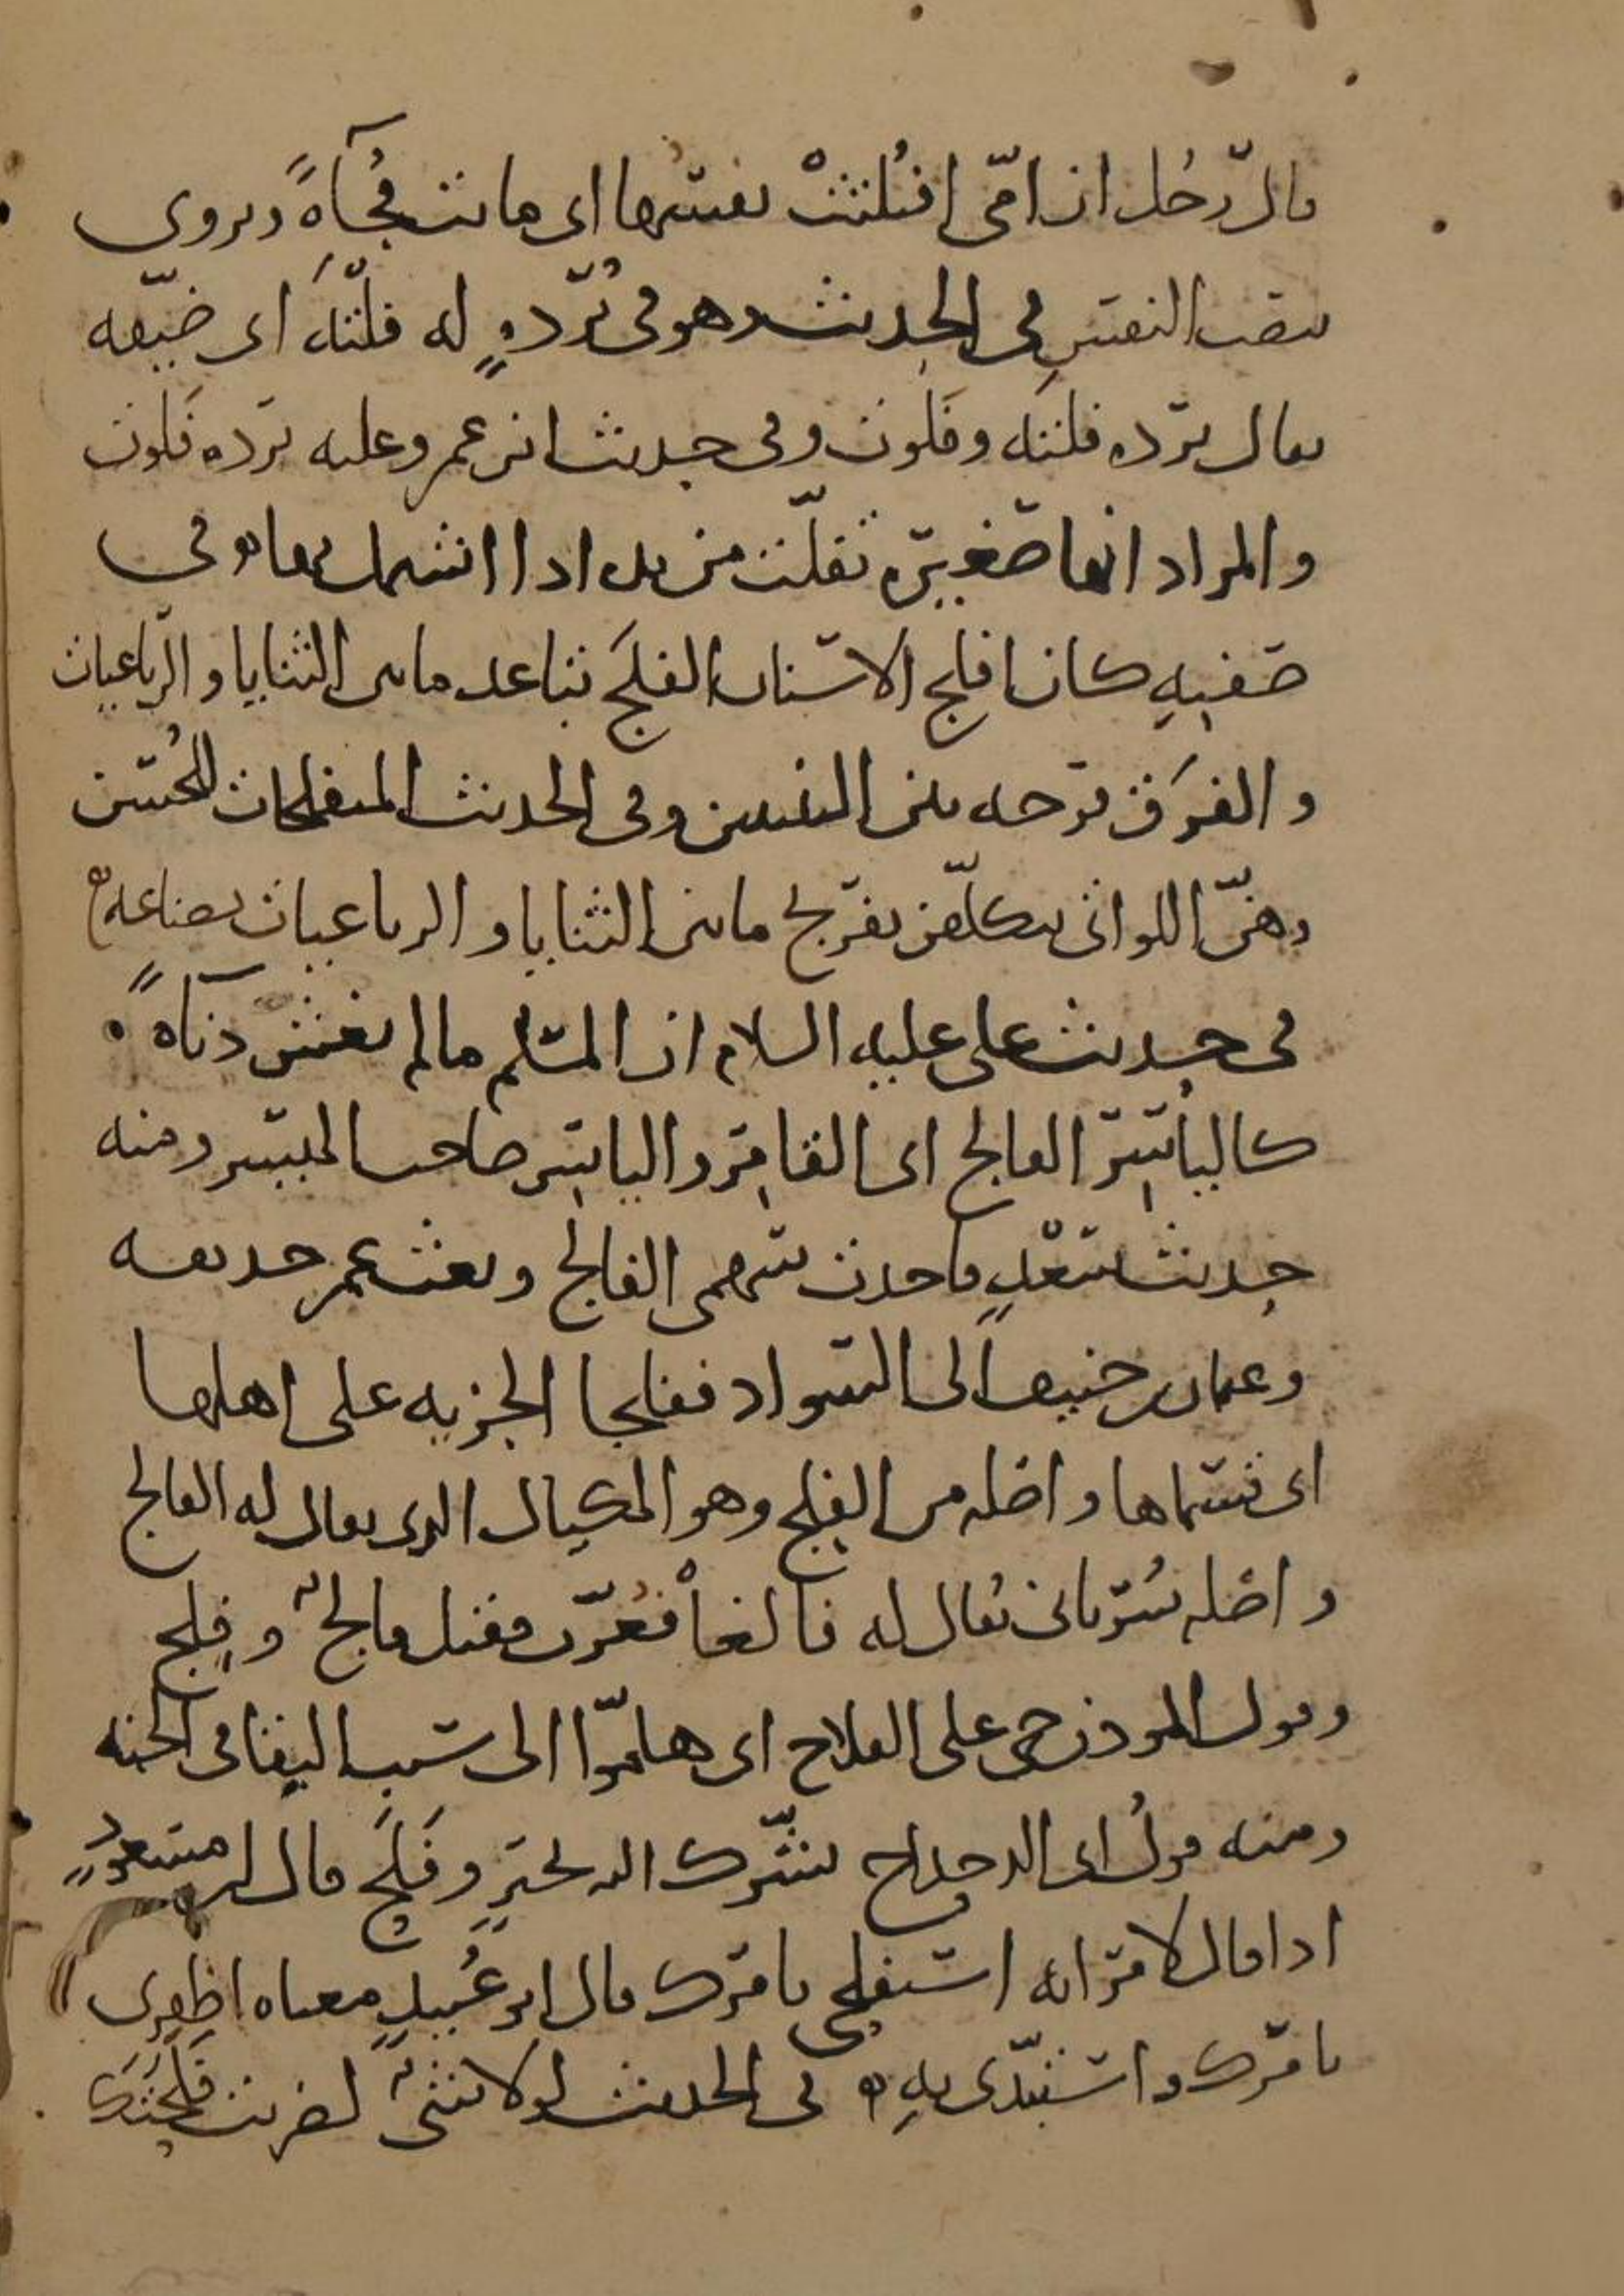 قال رجُل ان امّى افتُلتَتْ نفسُها اى ماتت فُجآةً ويروى
بنصب النفسِ فى الحديث وهو فى بُردةٍ له فَلْتَةٍ اى ضيّقه
يقال بردة فلتة وفلوت وفى حديث ابن عمر وعليه بردة فَلوت
والمراد انها صغيرة تفلّت من يده اذا اشتمل بها وفى
صفتِهِ كان افلج الاسنان الفلَج تباعد ما بين الثنايا والرباعيات
والفرَق فرجه بين الثنيتين وفى الحديث المتفلجات للحُسن
وهنّ اللواتى يتكلّفن تفريج ما بين الثنايا والرباعيات بصناعة
فى حديث على عليه السلام ان المسلم ما لم يغش دنآةً
كالياسِر الفالج اى القامِر والياسِر صاحب الميسر ومنه
حديث سَعْدٍ فاخذت سهمى الفالج وبعث عمر حذيفه
وعثمان بن حنيف الى السواد ففلجا الجزيه على اهلها
اى قسماها واصله من الفِلج وهو المكيال الذى يقال له الفالج
واصله سُريانى يُقال له فالغاْ فعُرّب فقيل فالجٌ وفِلج
وقول المؤذن حى على الفلاح اى هلمّوا الى سبب البقا فى الجنه
ومنه قولُ ابى الدحداح بشّرك الله بخيرٍ وفَلَحٍ قال ابن مسعودٍ
اذا قال لامراته استفلحى بامرك قال ابو عُبيدٍ معناه اظفِرى
بامرك واستبدّى بهِ فى الحديث لولا شىٌ لضربت فَلَحَتَكَ